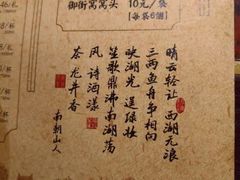 御街窝窝头 10元/袋
[每袋6個]
晴云轻让西湖无浪
三两鱼舟争相向
映湖光逞球妆
笙歌鼎沸南湖荡
风诗酒漾
茶龙井香
南朝山人